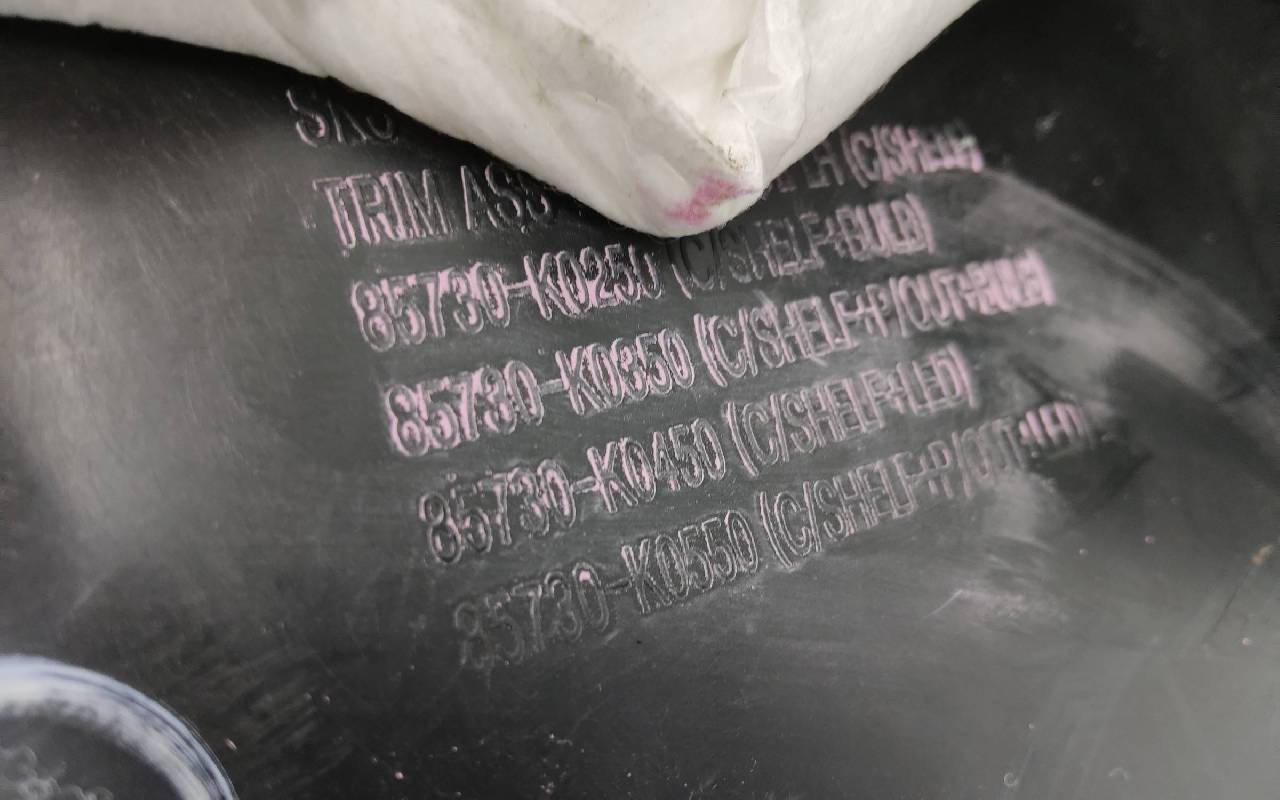 TRIM ASS LH (C/SHELF)
85730-K0250 (C/SHELF+BULB)
85730-K0350 (C/SHELF+P/OUT+BULB)
85730-K0450 (C/SHELF+LED)
85730-K0550 (C/SHELF+P/OUT+LED)